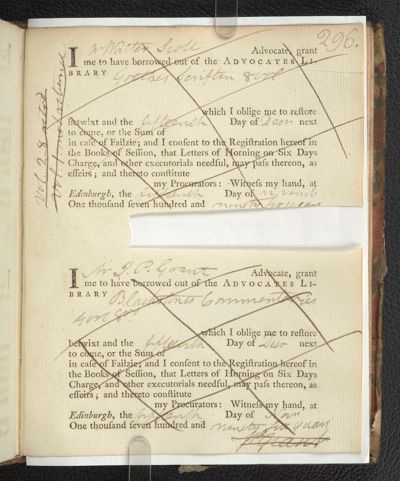 296.
I Mr Walter Scott Advocate, grant
me to have borrowed out of the ADVOCATES LI-
BRARY Goethes Schriften 8 vol
which I oblige me to reſtore
betwixt and the fifteenth Day of Decr next
to come, or the Sum of
in caſe of Failzie; and I conſent to the Regiſtration hereof in
the Books of Seſſion, that Letters of Horning on Six Days
Charge, and other executorials needful, may paſs thereon, as
effeirs; and thereto conſtitute
my Procurators: Witneſs my hand, at
Edinburgh, the fifteenth Day of
One thouſand ſeven hundred and ninety six years
I Mr J. P. Grant Advocate, grant
me to have borrowed out of the ADVOCATES LI-
BRARY Blackstones Commentaries
4 vol 8vo
which I oblige me to reſtore
betwixt and the fifteenth Day of Decr next
to come, or the Sum of
in caſe of Failzie; and I conſent to the Regiſtration hereof in
the Books of Seſſion, that Letters of Horning on Six Days
Charge, and other executorials needful, may paſs thereon, as
effeirs; and thereto conſtitute
my Procurators: Witneſs my hand, at
Edinburgh, the fifteenth Day of
One thouſand ſeven hundred and ninety six years